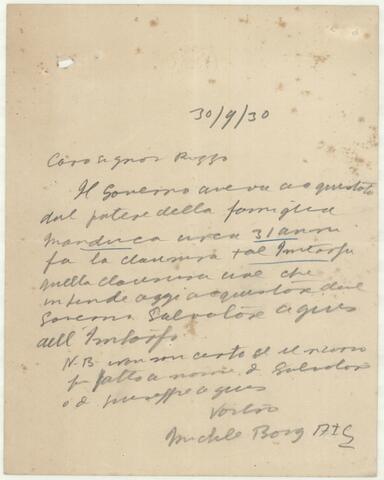 30/9/30
Caro Signor Rizzo
Il Governo aveva acquistato
dal potere della famiglia
Manduca circa 31 anni
fa la clausura tal Imtorfa
quella clausura che
intende oggi acquistare dal
Governo Salvatore Agius
dell Imtorfo
N.B. non son certo se il ricorso
fu fatto a nome di Salvatore
o di Giuseppe Agius
Vostro
Michele Borg A&C